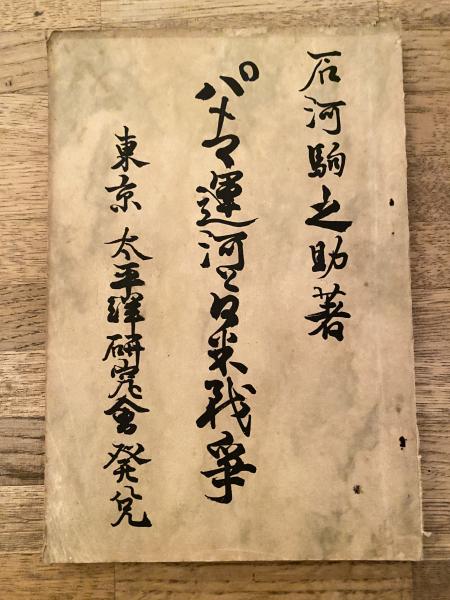 石河駒之助著
パナマ運河と日米戦争
東京 太平洋研究會発兌